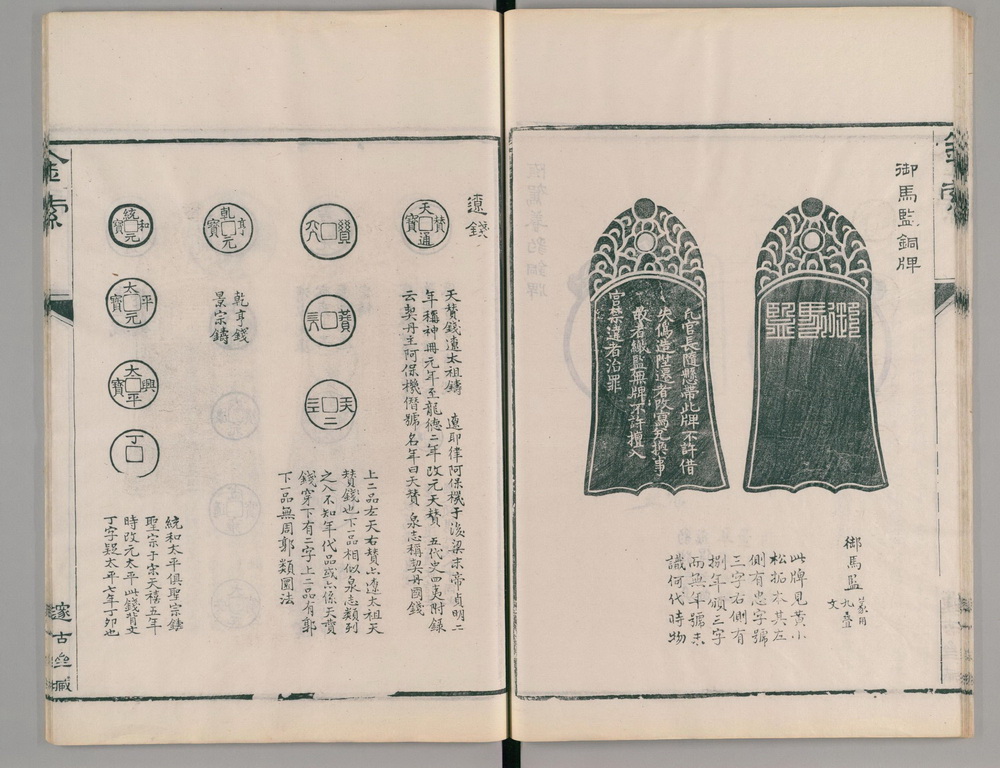 金索
御馬監銅牌
御馬監
凡官長隨懸帶此牌不許借
失偽造附逺者改寫兌換事
敢者緘監無牌不許擅入
宫禁違者治罪
御馬監 篆用
九叠
文
此牌見黄小
松拓本其左
側有忠字號
三字右側有
捌年頒三字
而無年號未
識何代時物
遼錢
天贊通寶
天贊錢遼太祖鑄 遼耶律阿保機于後梁末帝貞明二
年稱神冊元年至龍德二年改元天贊 五代史四夷附錄
云契丹主阿保機僭號名年曰天贊 泉志稱契丹國錢
上二品左天右贊亦遼太祖天
贊錢也下一品相似泉志類列
之入不知年代品或亦係天贊
錢穿下有二字上二品有郭
下一品無周郭類圜法
乾亨元寶
乾亨錢
景宗鑄
統和元寶
太平元寶
太平興寶
丁
統和太平俱聖宗鑄
聖宗于宋天禧五年
時改元太平 此錢背文
丁字疑太平七年丁卯也
金索
邃古齋藏